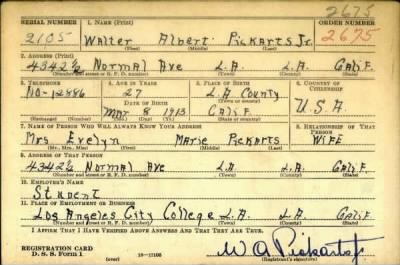 2675
SERIAL NUMBER 1. NAME (Print) ORDER NUMBER
2105 Walter Albert Pickarts Jr. 2675
(First) (Middle) (Last)
2. ADDRESS (Print)
4342½ Normal Ave L.A. L.A. Calif.
(Number and street or R. F. D. number) (Town) (County) (State)
3. TELEPHONE 4. AGE IN YEARS 5. PLACE OF BIRTH 6. COUNTRY OF CITIZENSHIP
NO-12886 27 L.A. County
DATE OF BIRTH (Town or county)
Mar 8 1913 Calif. U.S.A.
(Exchange) (Number) (Mo.) (Day) (Yr.) (State or country)
7. NAME OF PERSON WHO WILL ALWAYS KNOW YOUR ADDRESS 8. RELATIONSHIP OF THAT PERSON
Mrs Evelyn Marie Pickarts Wife
(Mr., Mrs., Miss) (First) (Middle) (Last)
9. ADDRESS OF THAT PERSON
4342½ Normal Ave L.A. L.A. Calif.
(Number and street or R. F. D. number) (Town) (County) (State)
10. EMPLOYER'S NAME
Student
11. PLACE OF EMPLOYMENT OR BUSINESS
Los Angeles City College L.A. L.A. Calif
(Number and street or R. F. D. number) (Town) (County) (State)
I AFFIRM THAT I HAVE VERIFIED ABOVE ANSWERS AND THAT THEY ARE TRUE.
REGISTRATION CARD
D. S. S. Form 1 (over) 16-17105 W A Pickarts Jr.
(Registrant's signature)